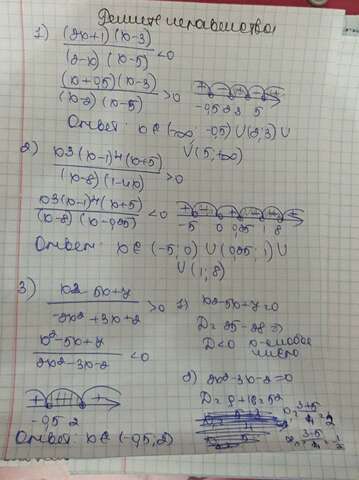 Решите неравенства
1) (2x+1)(x-3) / (2-x)(x-5) < 0
(x+0,5)(x-3) / (x-2)(x-5) > 0
+ - + - +
-0,5 2 3 5
Ответ: x ∈ (-∞; -0,5) ∪ (2; 3) ∪
∪ (5; +∞)
2) x3(x-1)^4(x+5) / (x-8)(1-4x) > 0
x3(x-1)^4(x+5) / (x-8)(x-0,25) < 0
-5 0 0,25 1 8
Ответ: x ∈ (-5; 0) ∪ (0,25; 1) ∪
∪ (1; 8)
3) x2-5x+7 / -2x2+3x+2 > 0
x2-5x+7 / 2x2-3x-2 < 0
+ +
-0,5 2
Ответ: x ∈ (-0,5; 2)
1) x2-5x+7=0
D = 25-28 ⇒
D<0 x-любое
число
2) 2x2-3x-2=0
D = 9+16=52
x1 = 3+5 / 4 = 2
x2 = 3-5 / 4 = -1/2